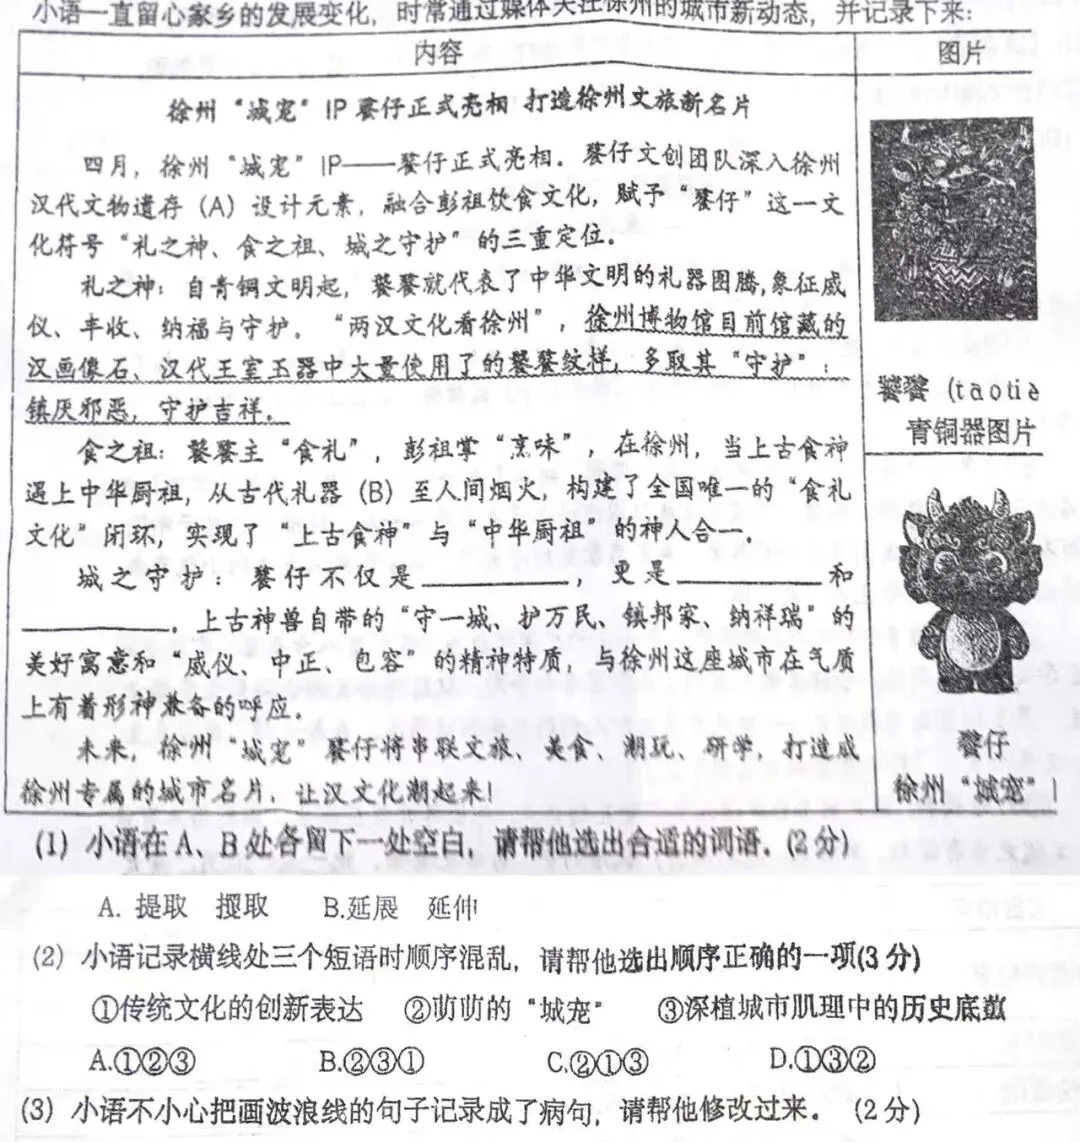 小语一直留心家乡的发展变化，时常通过媒体关注徐州的城市新动态，并记录下来：
内容
图片
徐州“城宠”IP餮仔正式亮相 打造徐州文旅新名片
四月，徐州“城宠”IP——餮仔正式亮相。餮仔文创团队深入徐州
汉代文物遗存（A）设计元素，融合彭祖饮食文化，赋予“餮仔”这一文
化符号“礼之神、食之祖、城之守护”的三重定位。
礼之神：自青铜文明起，饕餮就代表了中华文明的礼器图腾，象征威
仪、丰收、纳福与守护。“两汉文化看徐州”，徐州博物馆目前馆藏的
汉画像石、汉代王室玉器中大量使用了的饕餮纹样，多取其“守护”：
镇厌邪恶，守护吉祥。
食之祖：饕餮主“食礼”，彭祖掌“烹味”，在徐州，当上古食神
遇上中华厨祖，从古代礼器（B）至人间烟火，构建了全国唯一的“食礼
文化”闭环，实现了“上古食神”与“中华厨祖”的神人合一。
城之守护：餮仔不仅是__________，更是__________和
__________。上古神兽自带的“守一城、护万民、镇邦家、纳祥瑞”的
美好寓意和“威仪、中正、包容”的精神特质，与徐州这座城市在气质
上有着形神兼备的呼应。
未来，徐州“城宠”餮仔将串联文旅、美食、潮玩、研学，打造成
徐州专属的城市名片，让汉文化潮起来！
饕餮（taotie
青铜器图片
餮仔
徐州“城宠”I
(1) 小语在 A、B 处各留下一处空白，请帮他选出合适的词语。(2分)
A. 提取 攫取 B.延展 延伸
(2) 小语记录横线处三个短语时顺序混乱，请帮他选出顺序正确的一项(3分)
①传统文化的创新表达 ②萌萌的“城宠” ③深植城市肌理中的历史底蕴
A.①②③ B.②③① C.②①③ D.①③②
(3) 小语不小心把画波浪线的句子记录成了病句，请帮他修改过来。（2分）